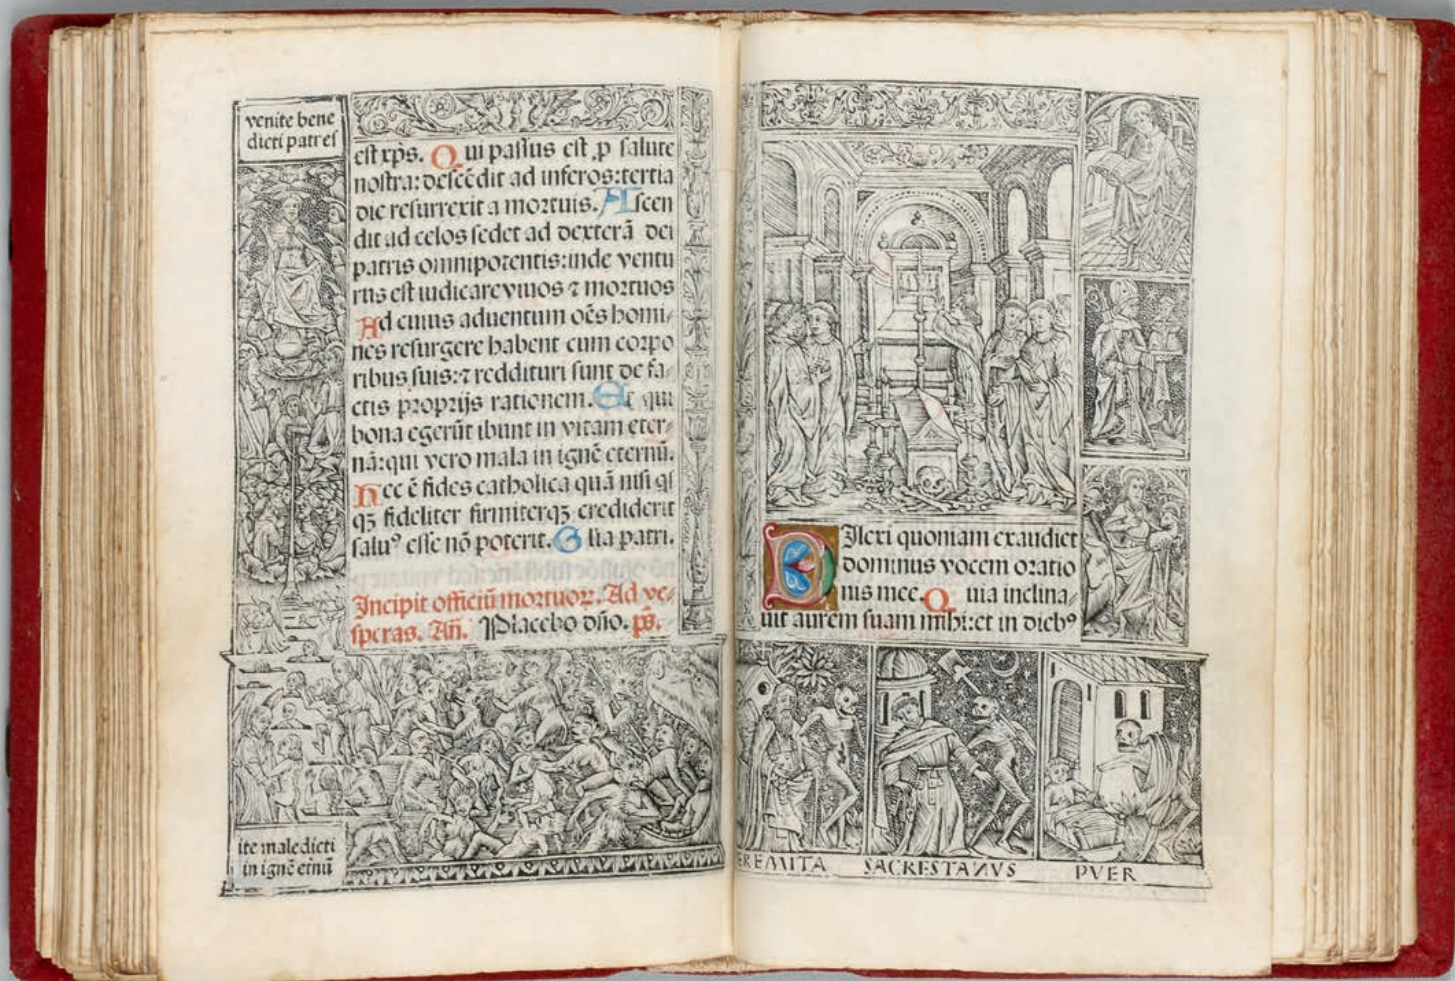 venite bene
dicti patres
est xp̄s. Qui passus est ꝓ salute
nostra: descēdit ad inferos: tertia
die resurrexit a mortuis. Ascen
dit ad celos sedet ad dexterā dei
patris omnipotentis: inde ventu
rus est iudicare viuos ⁊ mortuos
Ad cuius aduentum oēs homi⸗
nes resurgere habent cum corpo
ribus suis: ⁊ reddituri sunt de fa⸗
ctis proprijs rationem. Et qui
bona egerūt ibunt in vitam eter⸗
nā: qui vero mala in ignē eternū.
Hec ē fides catholica quā nisi q̇s
qꝫ fideliter firmiterqꝫ crediderit
saluꝰ esse nō poterit. Glīa patri.
Incipit officiū mortuoꝝ. Ad ve⸗
speras. Añ. Placebo dño. p̄s.
ite maledicti
in ignē etnū
Dilexi quoniam exaudiet
dominus vocem oratio
nis mee. Quia inclina⸗
uit aurem suam mihi: et in diebꝰ
EREMITA SACRESTANVS PVER